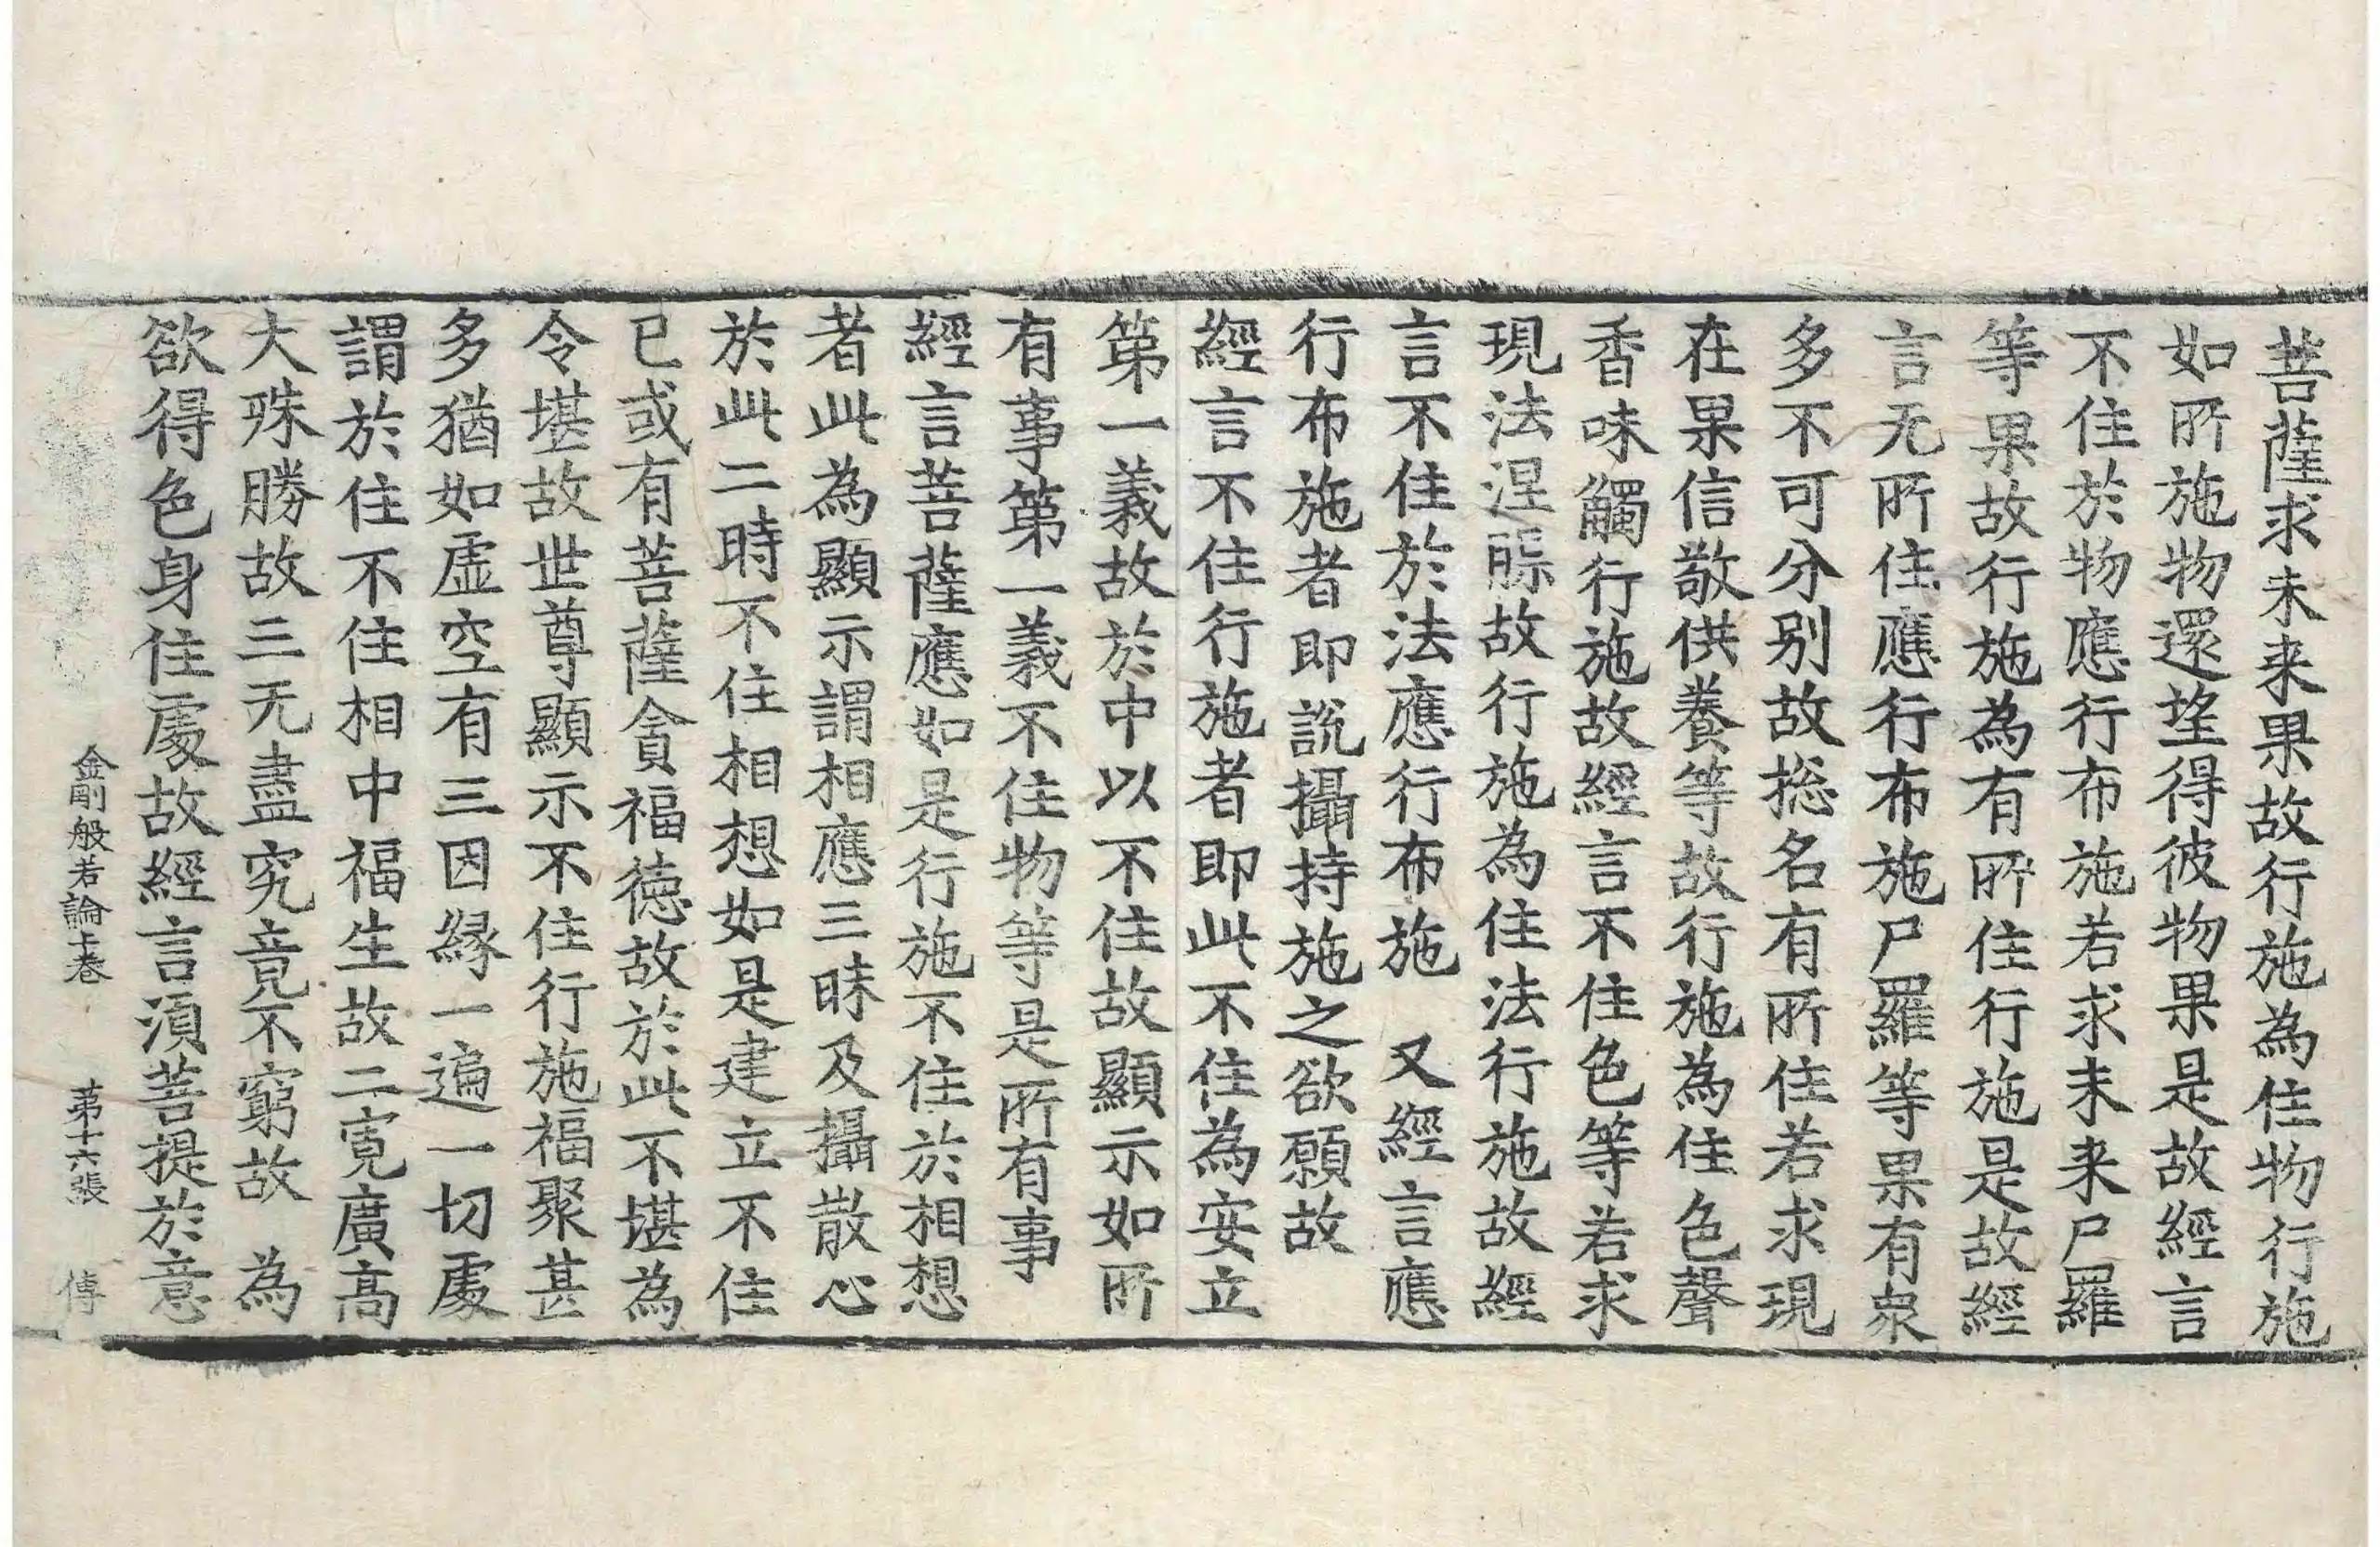 菩薩求未来果故行施為住物行施
如所施物還望得彼物果是故經言
不住於物應行布施若求未来尸羅
等果故行施為有所住行施是故經
言无所住應行布施尸羅等果有衆
多不可分别故揔名有所住若求現
在果信敬供養等故行施為住色聲
香味觸行施故經言不住色等若求
現法涅槃故行施為住法行施故經
言不住於法應行布施　又經言應
行布施者即說攝持施之欲願故
經言不住行施者即此不住為安立
第一義故於中以不住故顯示如所
有事第一義不住物等是所有事
經言菩薩應如是行施不住於相想
者此為顯示謂相應三昧及攝散心
於此二時不住相想如是建立不住
已或有菩薩貪福德故於此不堪為
令堪故世尊顯示不住行施福聚甚
多猶如虛空有三因緣一遍一切處
謂於住不住相中福生故二寬廣高
大殊勝故三无盡究竟不窮故　為
欲得色身住處故經言湏菩提於意
金剛般若論上卷　第十六張　傳